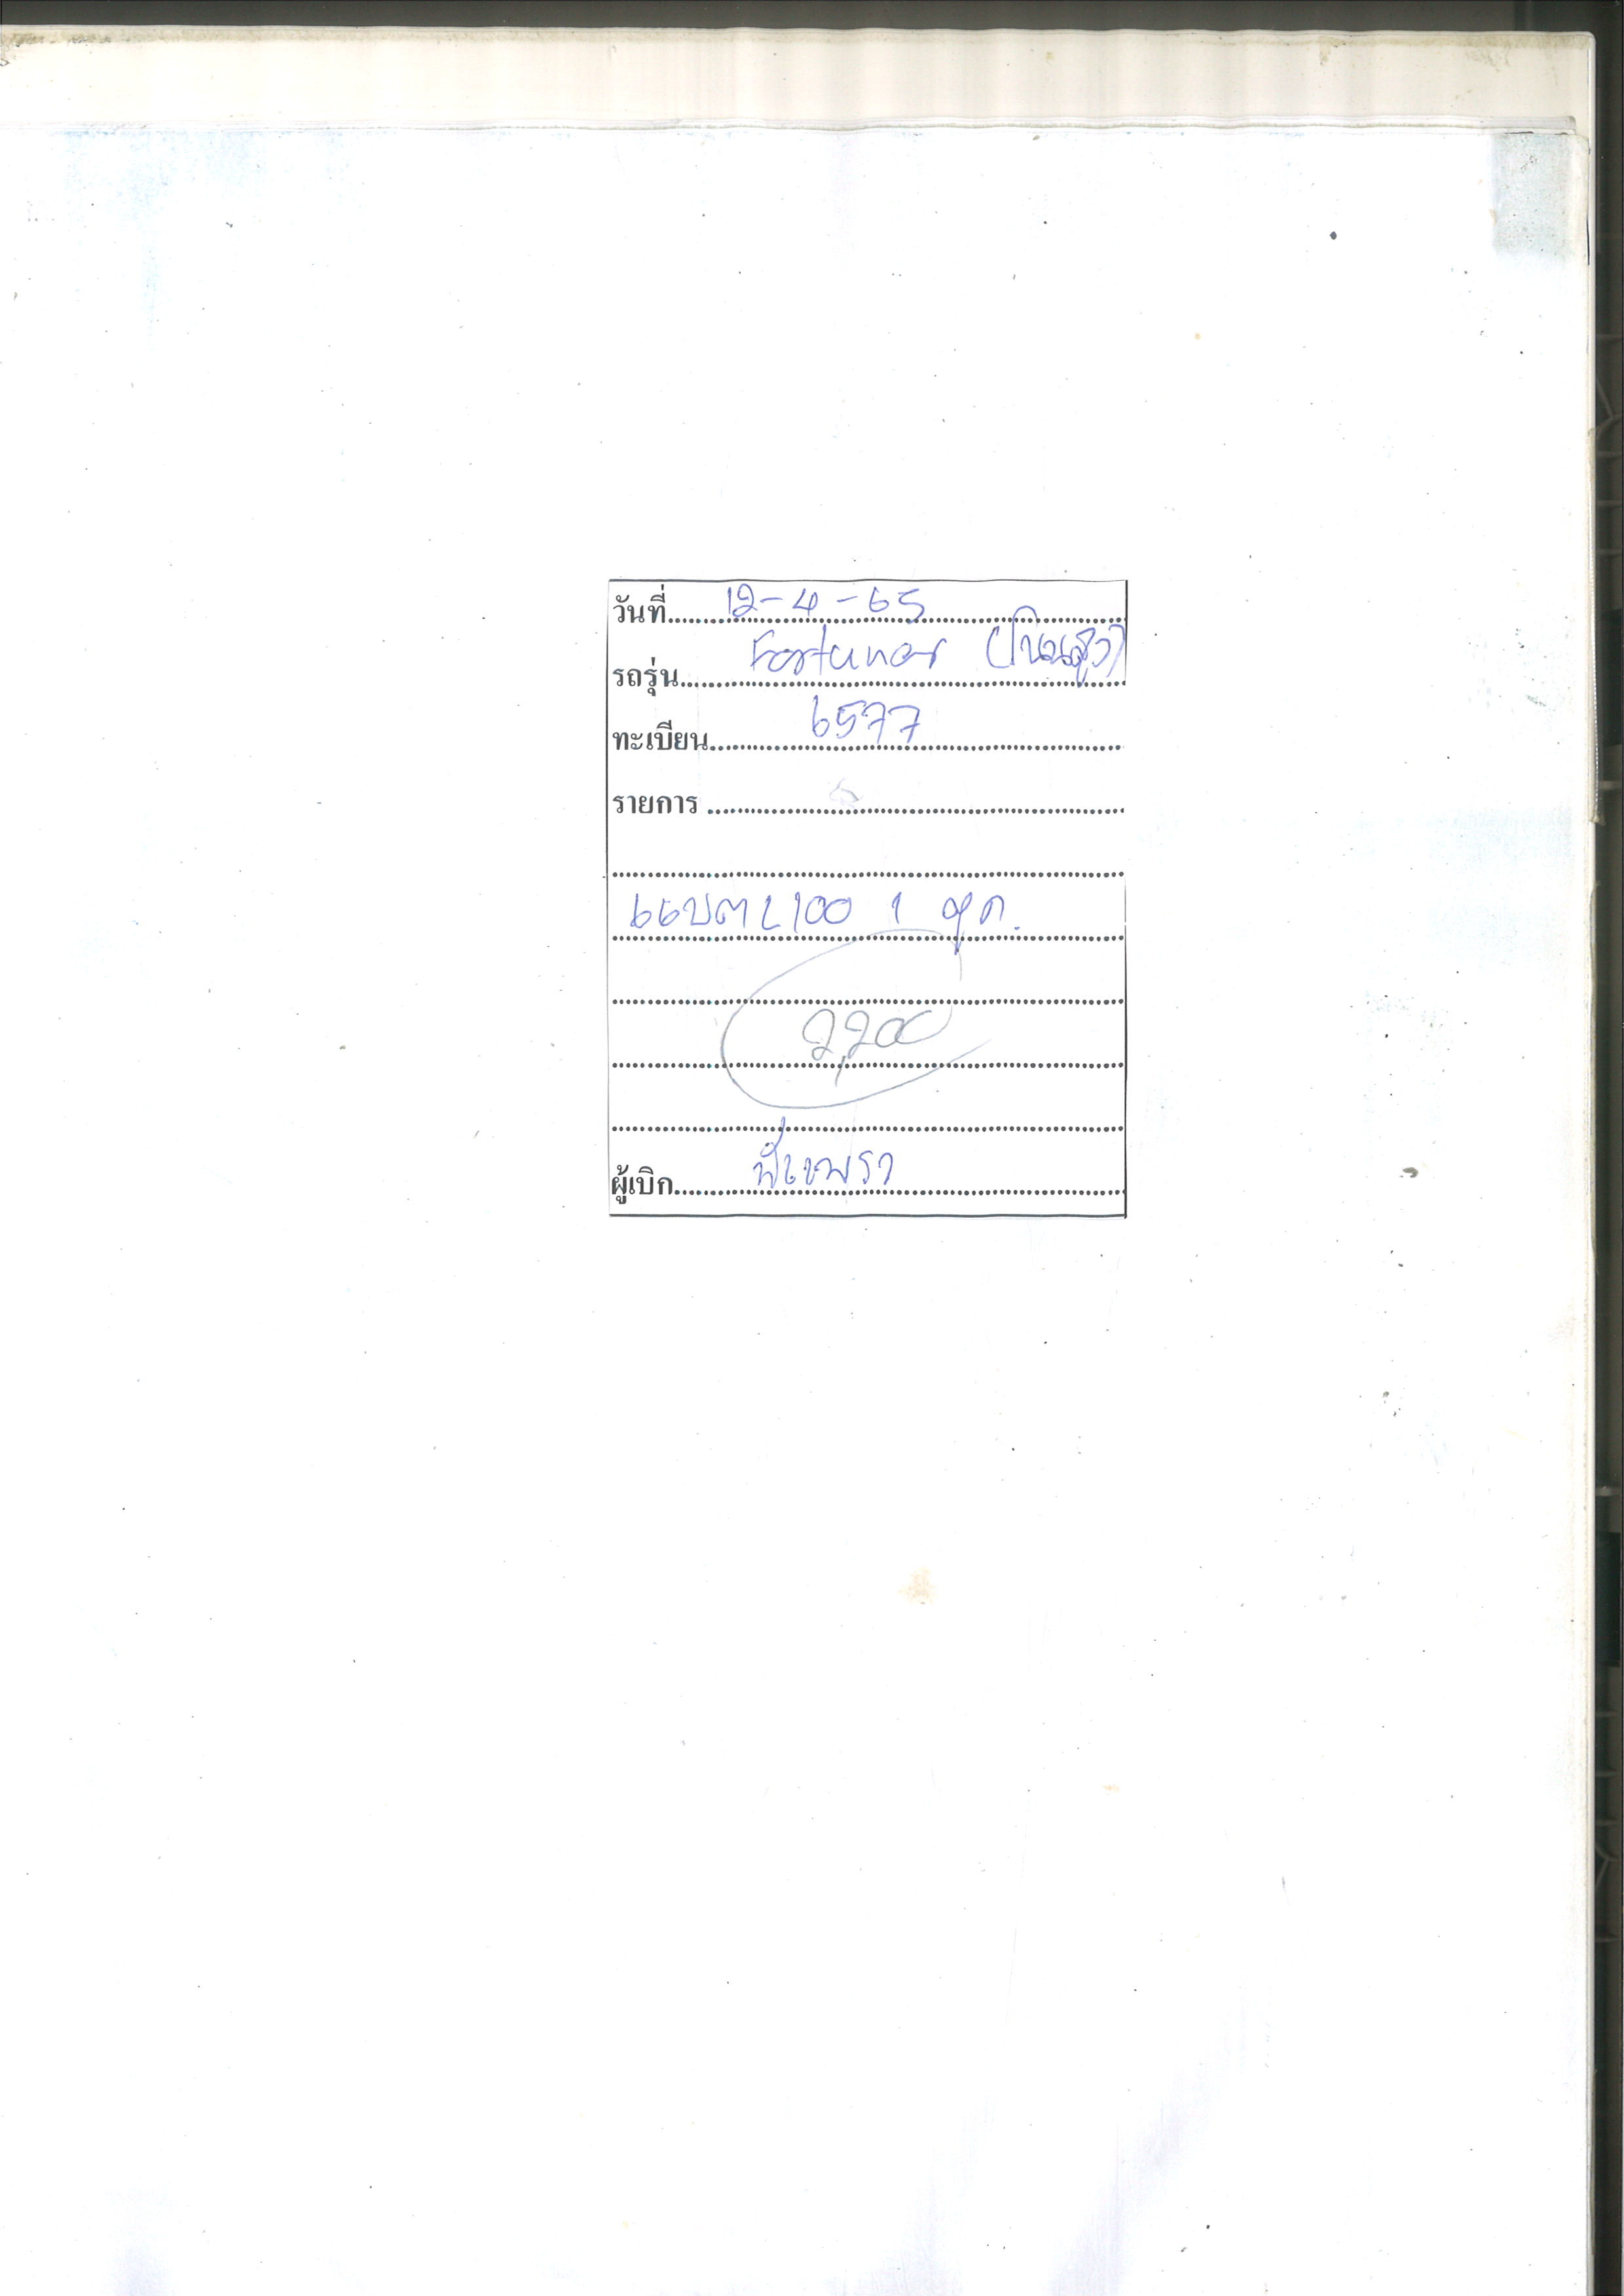 วันที่ 12-4-65
รถรุ่น Fortuner (โนนสูง)
ทะเบียน 6577
รายการ
แบตL100 1 ลูก.
2,200
ผู้เบิก พี่เพชรา